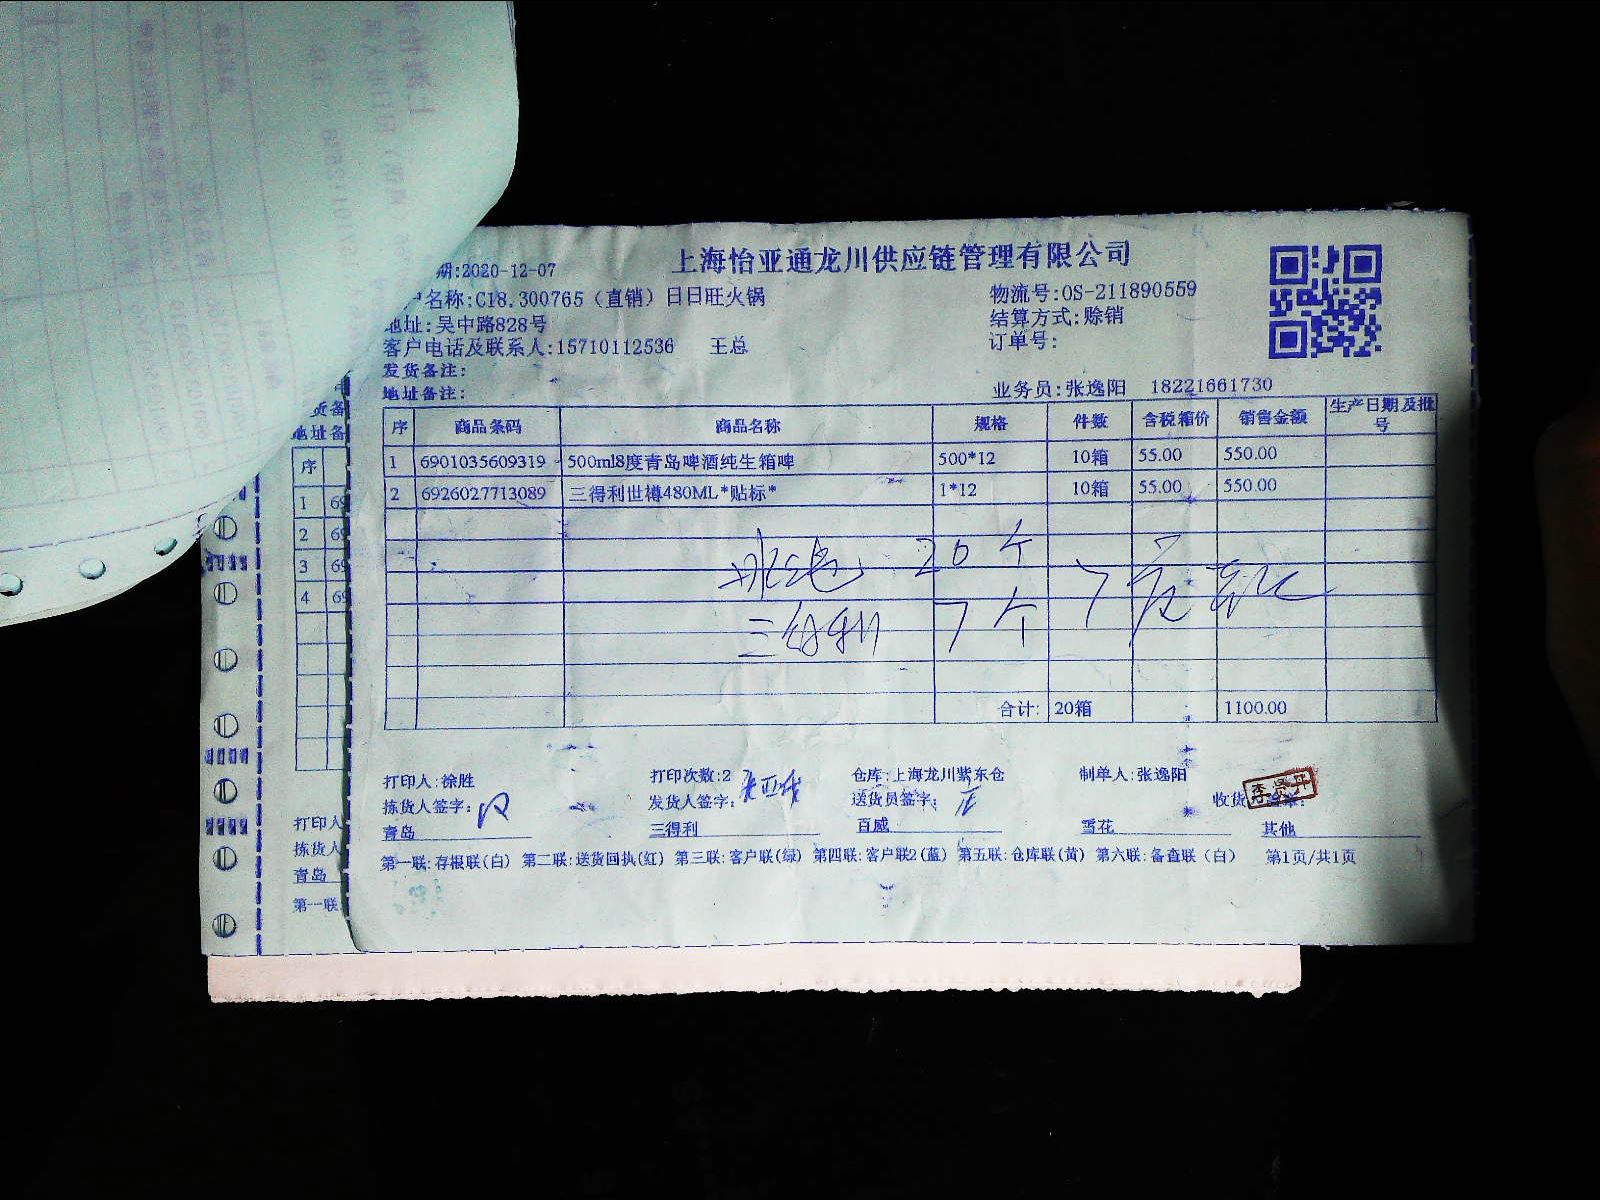 上海怡亚通龙川供应链管理有限公司
期:2020-12-07
户名称:C18.300765（直销）日日旺火锅
物流号:OS-211890559
地址:吴中路828号
结算方式:赊销
客户电话及联系人:15710112536 王总
订单号:
发货备注:
地址备注:
业务员:张逸阳 18221661730
序 商品条码 商品名称 规格 件数 含税箱价 销售金额 生产日期及批号
1 6901035609319 500ml8度青岛啤酒纯生箱啤 500*12 10箱 55.00 550.00
2 6926027713089 三得利世樽480ML*贴标* 1*12 10箱 55.00 550.00
20个
三得利 7个
合计: 20箱 1100.00
打印人:徐胜 打印次数:2 仓库:上海龙川紫东仓 制单人:张逸阳
拣货人签字: 发货人签字: 送货员签字: 收货
青岛 三得利 百威 雪花 其他
第一联:存根联(白) 第二联:送货回执(红) 第三联:客户联(绿) 第四联:客户联2(蓝) 第五联:仓库联(黄) 第六联:备查联（白） 第1页/共1页
货备
地址备
序
1 69
2 69
3 69
4 69
打印人
拣货人
青岛
第一联: